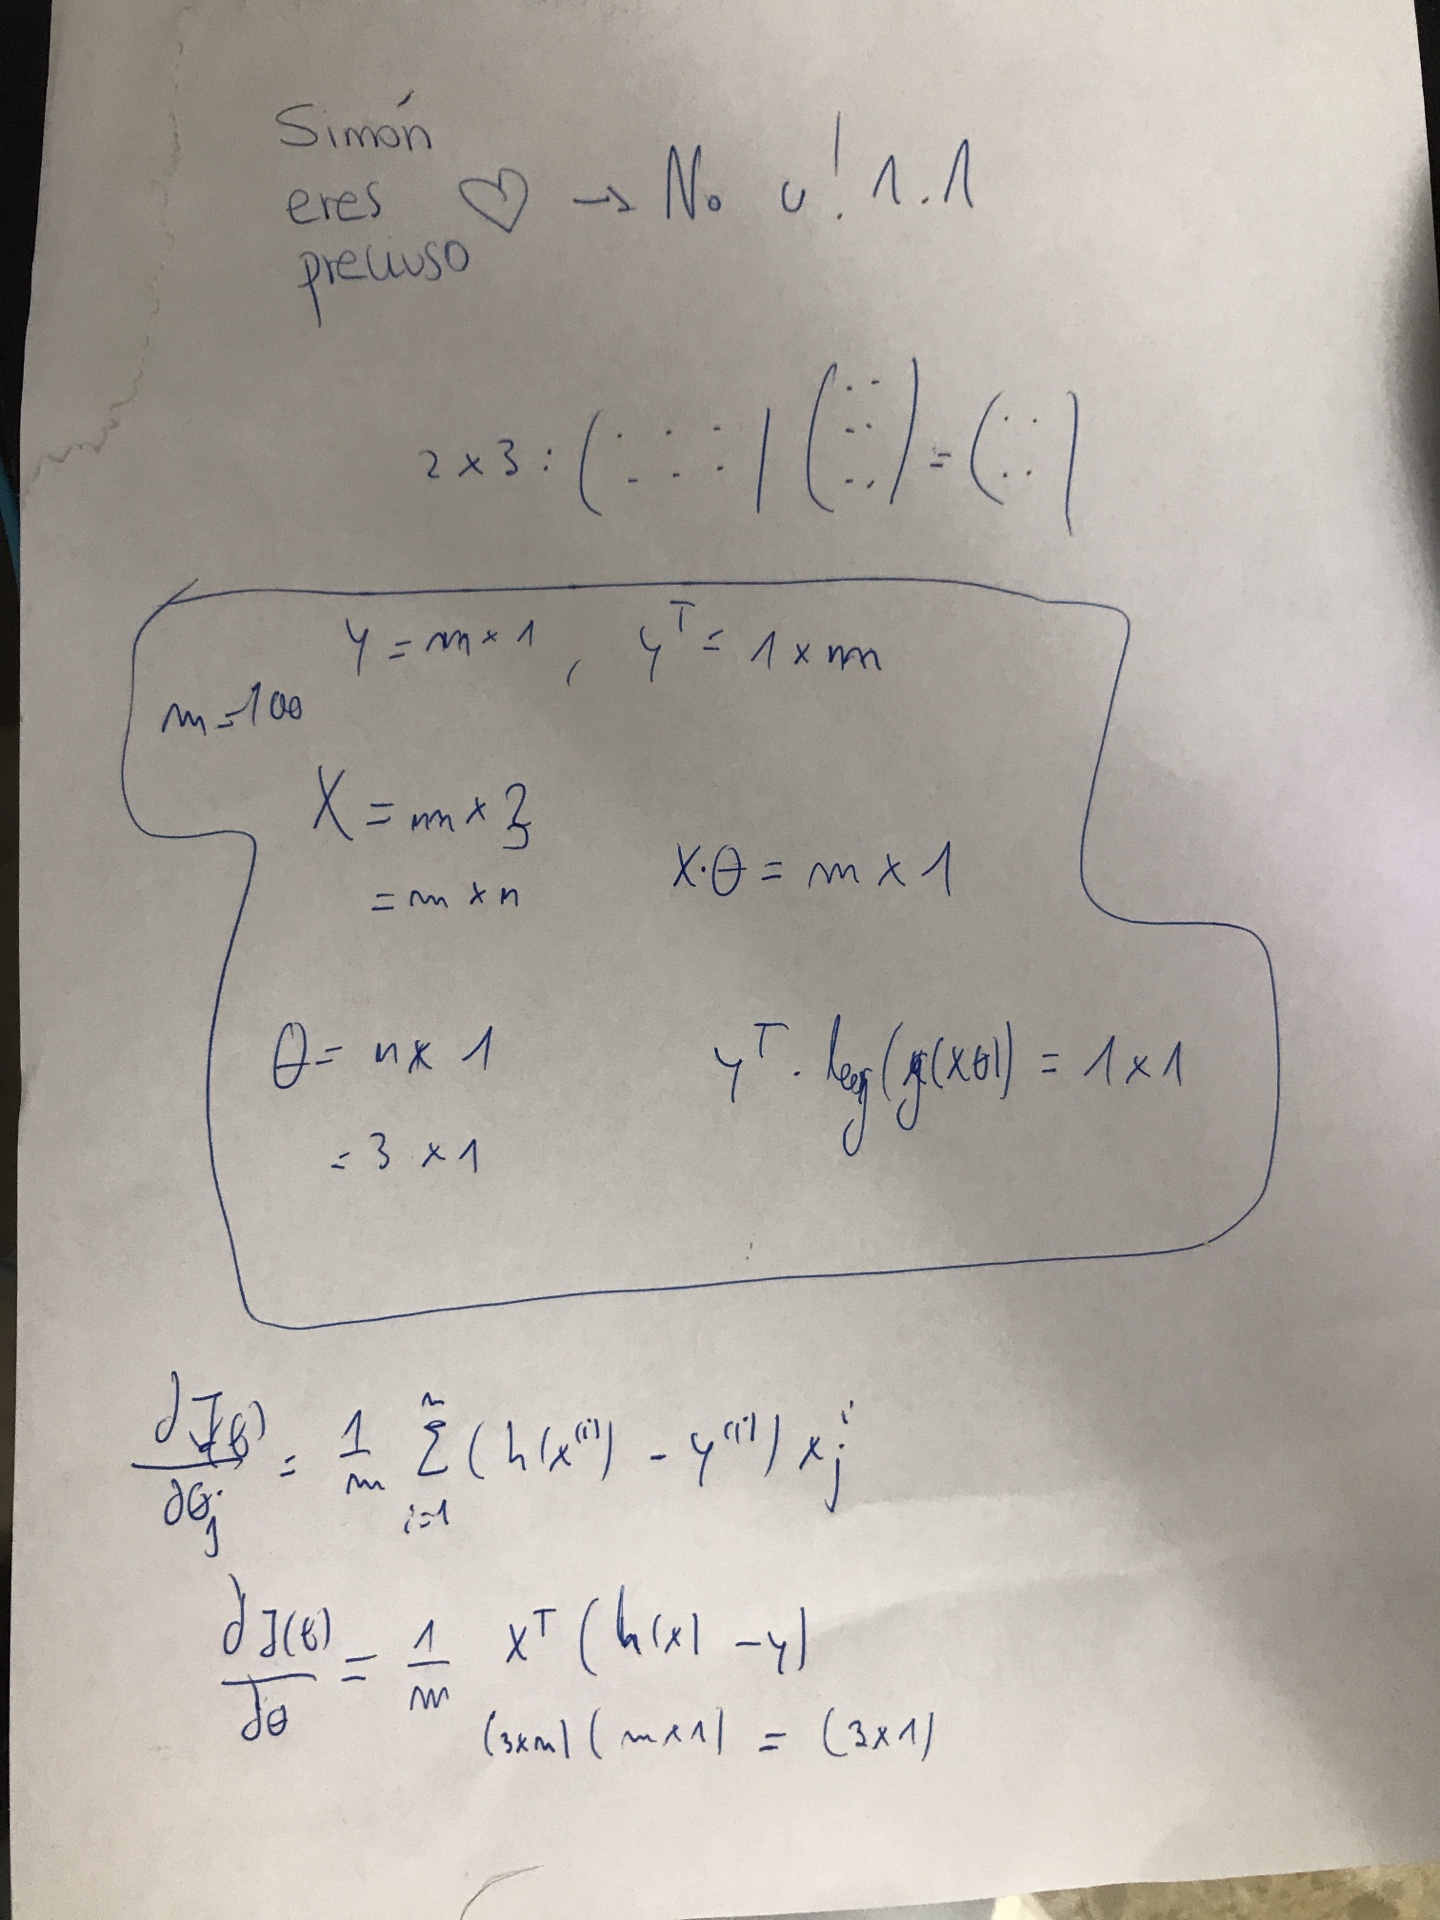 Simón
eres ♡ → No u! 1.1
precioso
2 x 3 : (: : :) (: : :) = (: :)
y = m x 1 , y^T = 1 x m
m = 100
X = m x 3
= m x n
X·θ = m x 1
θ = n x 1
y^T . log(g(Xθ)) = 1 x 1
= 3 x 1
∂J(θ)/∂θj = 1/m Σ_{i=1}^{m} (h(x^(i)) - y^(i)) xj^i
∂J(θ)/∂θ = 1/m X^T (h(x) - y)
(3xm) (m x 1) = (3x1)